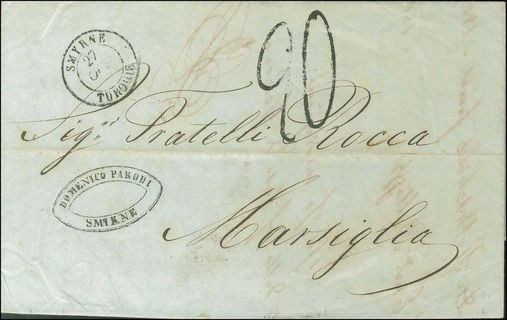 SMYRNE
27
TURQUIE
20
Sigri Fratelli Rocca
DOMENICO PARODI
SMIRNE
Marsiglia